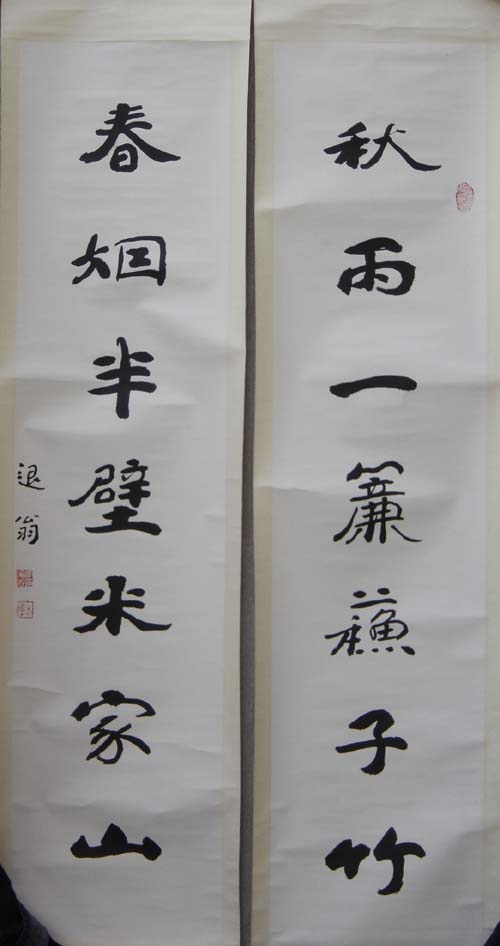 秋雨一簾蘓子竹
春烟半壁米家山
退翁